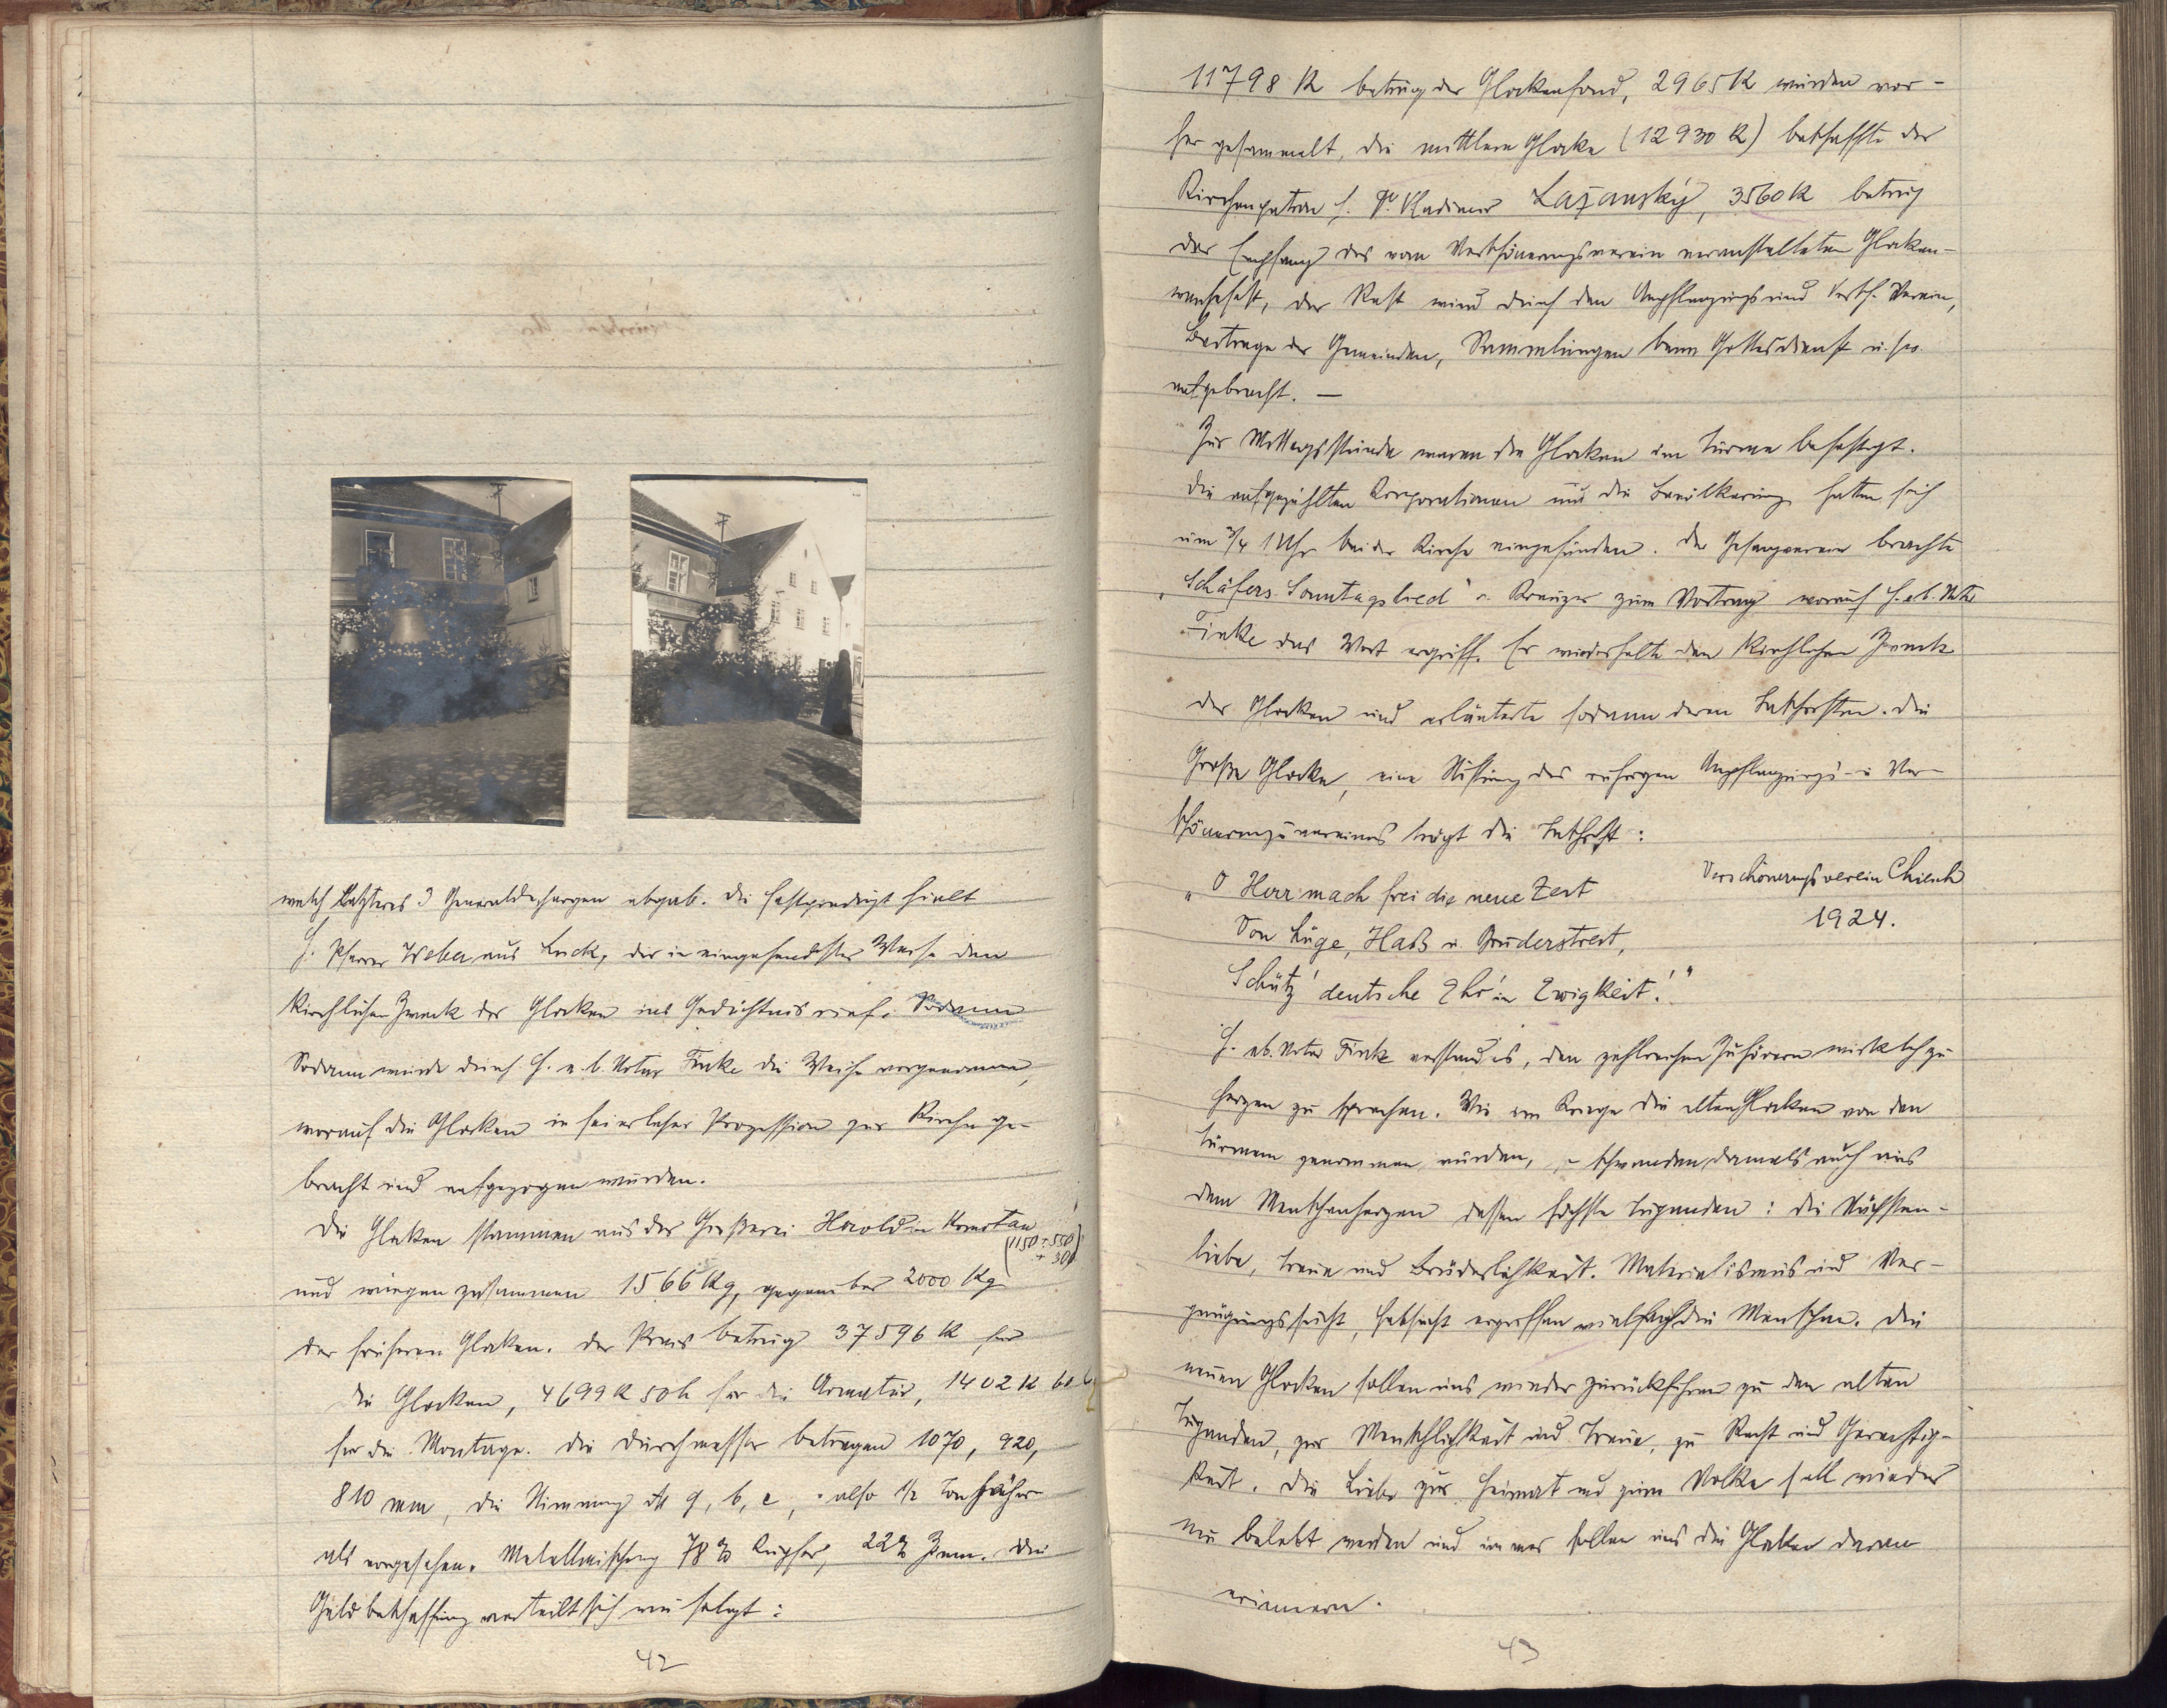 welch letzteres 3 Generaldechargen abgab. Die Festpredigt hielt
H. Pfarrer Weber aus Luck, der in eingehendster Weise den
kirchlichen Zweck der Glocken ins Gedächtnis rief. Sodann
Sodann wurde durch H. e. b. Notar Finke die Weihe vorgenommen,
worauf die Glocken in feierlicher Prozession zur Kirche ge-
bracht und aufgezogen wurden.
Die Glocken stammen aus der Gießerei Herold in Komotau
(1150 + 550
+ 300)
und wiegen zusammen 1566 Kg, gegenüber 2000 Kg
der früheren Glocken. Der Preis betrug 37596 K für
die Glocken, 4699 K 50 h für die Armatur, 1402 K
für die Montage. Die Durchmesser betragen 1070, 920,
810 mm, die Stimmung ist g, b, c, also 1/2 Ton höher
als vorgesehen. Metallmischung 78 % Kupfer, 22 % Zinn. Die
Geldbeschaffung verteilt sich wie folgt:
42
11798 K betrug der Glockenfond, 2965 K wurden vor-
her gesammelt, die mittlere Glocke (12930 K) beschaffte der
Kirchenpatron H. Gr. Wladimir Lažanský, 3560 K betrug
der Empfang des vom Verschönerungsverein veranstalteten Glocken-
weihefest, der Rest wird durch den Anpflanzungs und Versch. Verein,
Beitrage der Gemeinden, Sammlungen beim Gottesdienst u. sw.
aufgebracht. —
Zur Mittagsstunde waren die Glocken im Turme befestigt.
Die aufgezählten Korporationen und die Bevölkerung hatten sich
um 3/4 1 Uhr bei der Kirche eingefunden. Der Gesangverein brachte
„Schäfers Sonntagslied“ v. Kreuzer zum Vortrag worauf H. e. b. Notar
Finke das Wort ergriff. Er wiederholte den kirchlichen Zweck
der Glocken und erläuterte sodann deren Inschriften. Die
Große Glocke, eine Stiftung des rührigen Anpflanzungs- u Ver-
schönerungsvereines trägt die Inschrift:
„O Herr mach frei die neue Zeit
Von Lüge, Haß u. Bruderstreit,
Schütz' deutsche Ehr' in Ewigkeit!“
Verschönerungsverein Chiesch
1924.
H. eb. Notar Finke verstand es, den zahlreichen Zuhörern wirklich zu
Herzen zu sprechen. Wie im Kriege die alten Glocken von den
Türmen genommen wurden, – schwanden damals auch aus
dem Menschenherzen dessen höchste Tugenden: die Nächsten-
liebe, Treue und Brüderlichkeit. Materialismus und Ver-
gnügungssucht, Habsucht ergriffen vielfach die Menschen. Die
neuen Glocken sollen uns wieder zurückführen zu den alten
Tugenden, zur Menschlichkeit und Treue, zu Recht und Gerechtig-
keit. Die Liebe zur Heimat und zum Volke soll wieder
neu belebt werden und immer sollen uns die Glocken daran
erinnern.
43